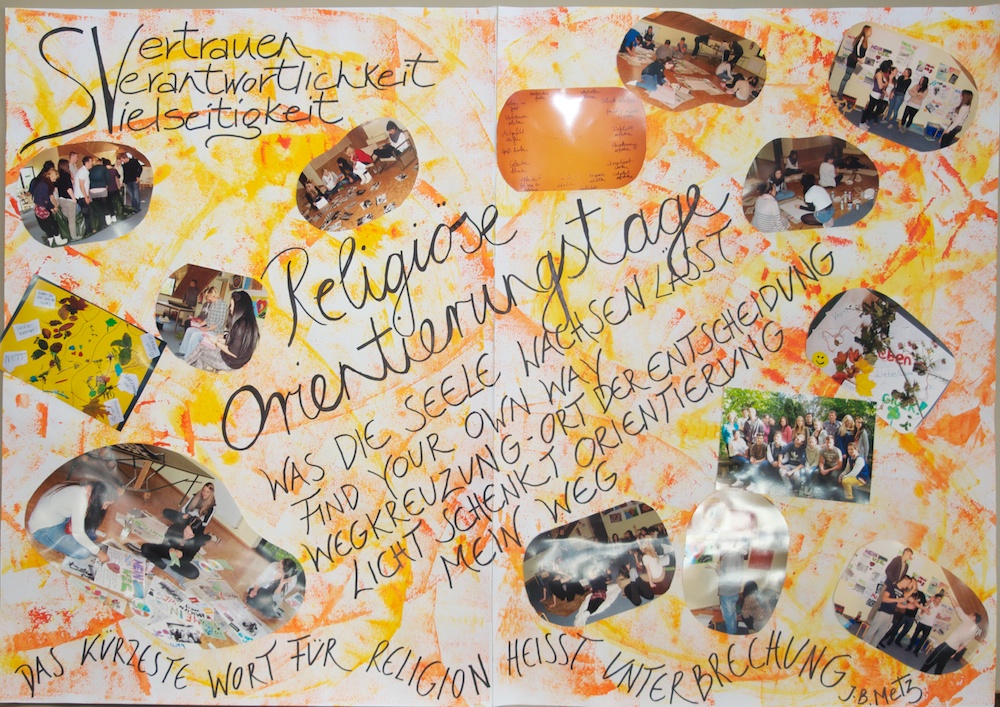 SVertrauen
Verantwortlichkeit
Vielseitigkeit
Religiöse
Orientierungstage
WAS DIE SEELE WACHSEN LÄSST
FIND YOUR OWN WAY
WEGKREUZUNG-ORT DER ENTSCHEIDUNG
LICHT SCHENKT ORIENTIERUNG
MEIN WEG
DAS KÜRZESTE WORT FÜR RELIGION HEISST UNTERBRECHUNG
J.B. Metz